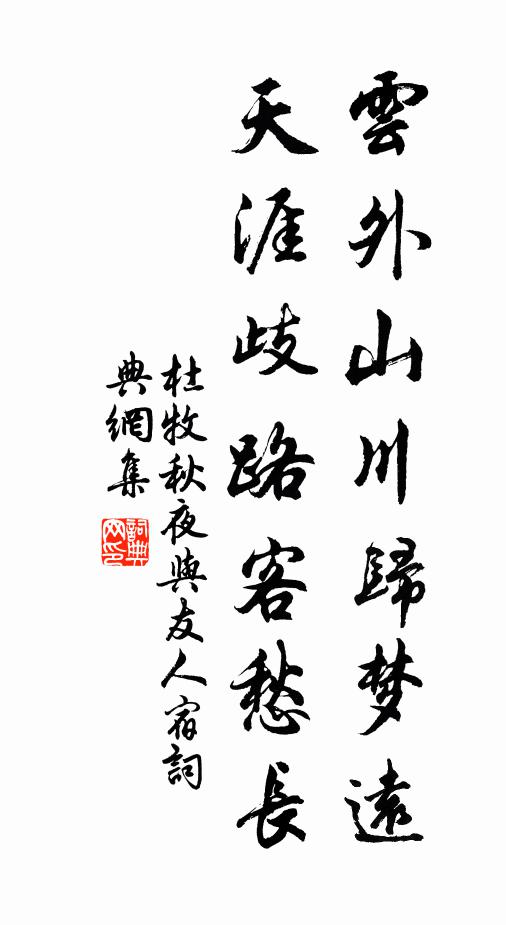 雲外山川歸梦遠
天涯歧路客愁長
杜牧秋夜與友人宿詞
典網集
詞典网印